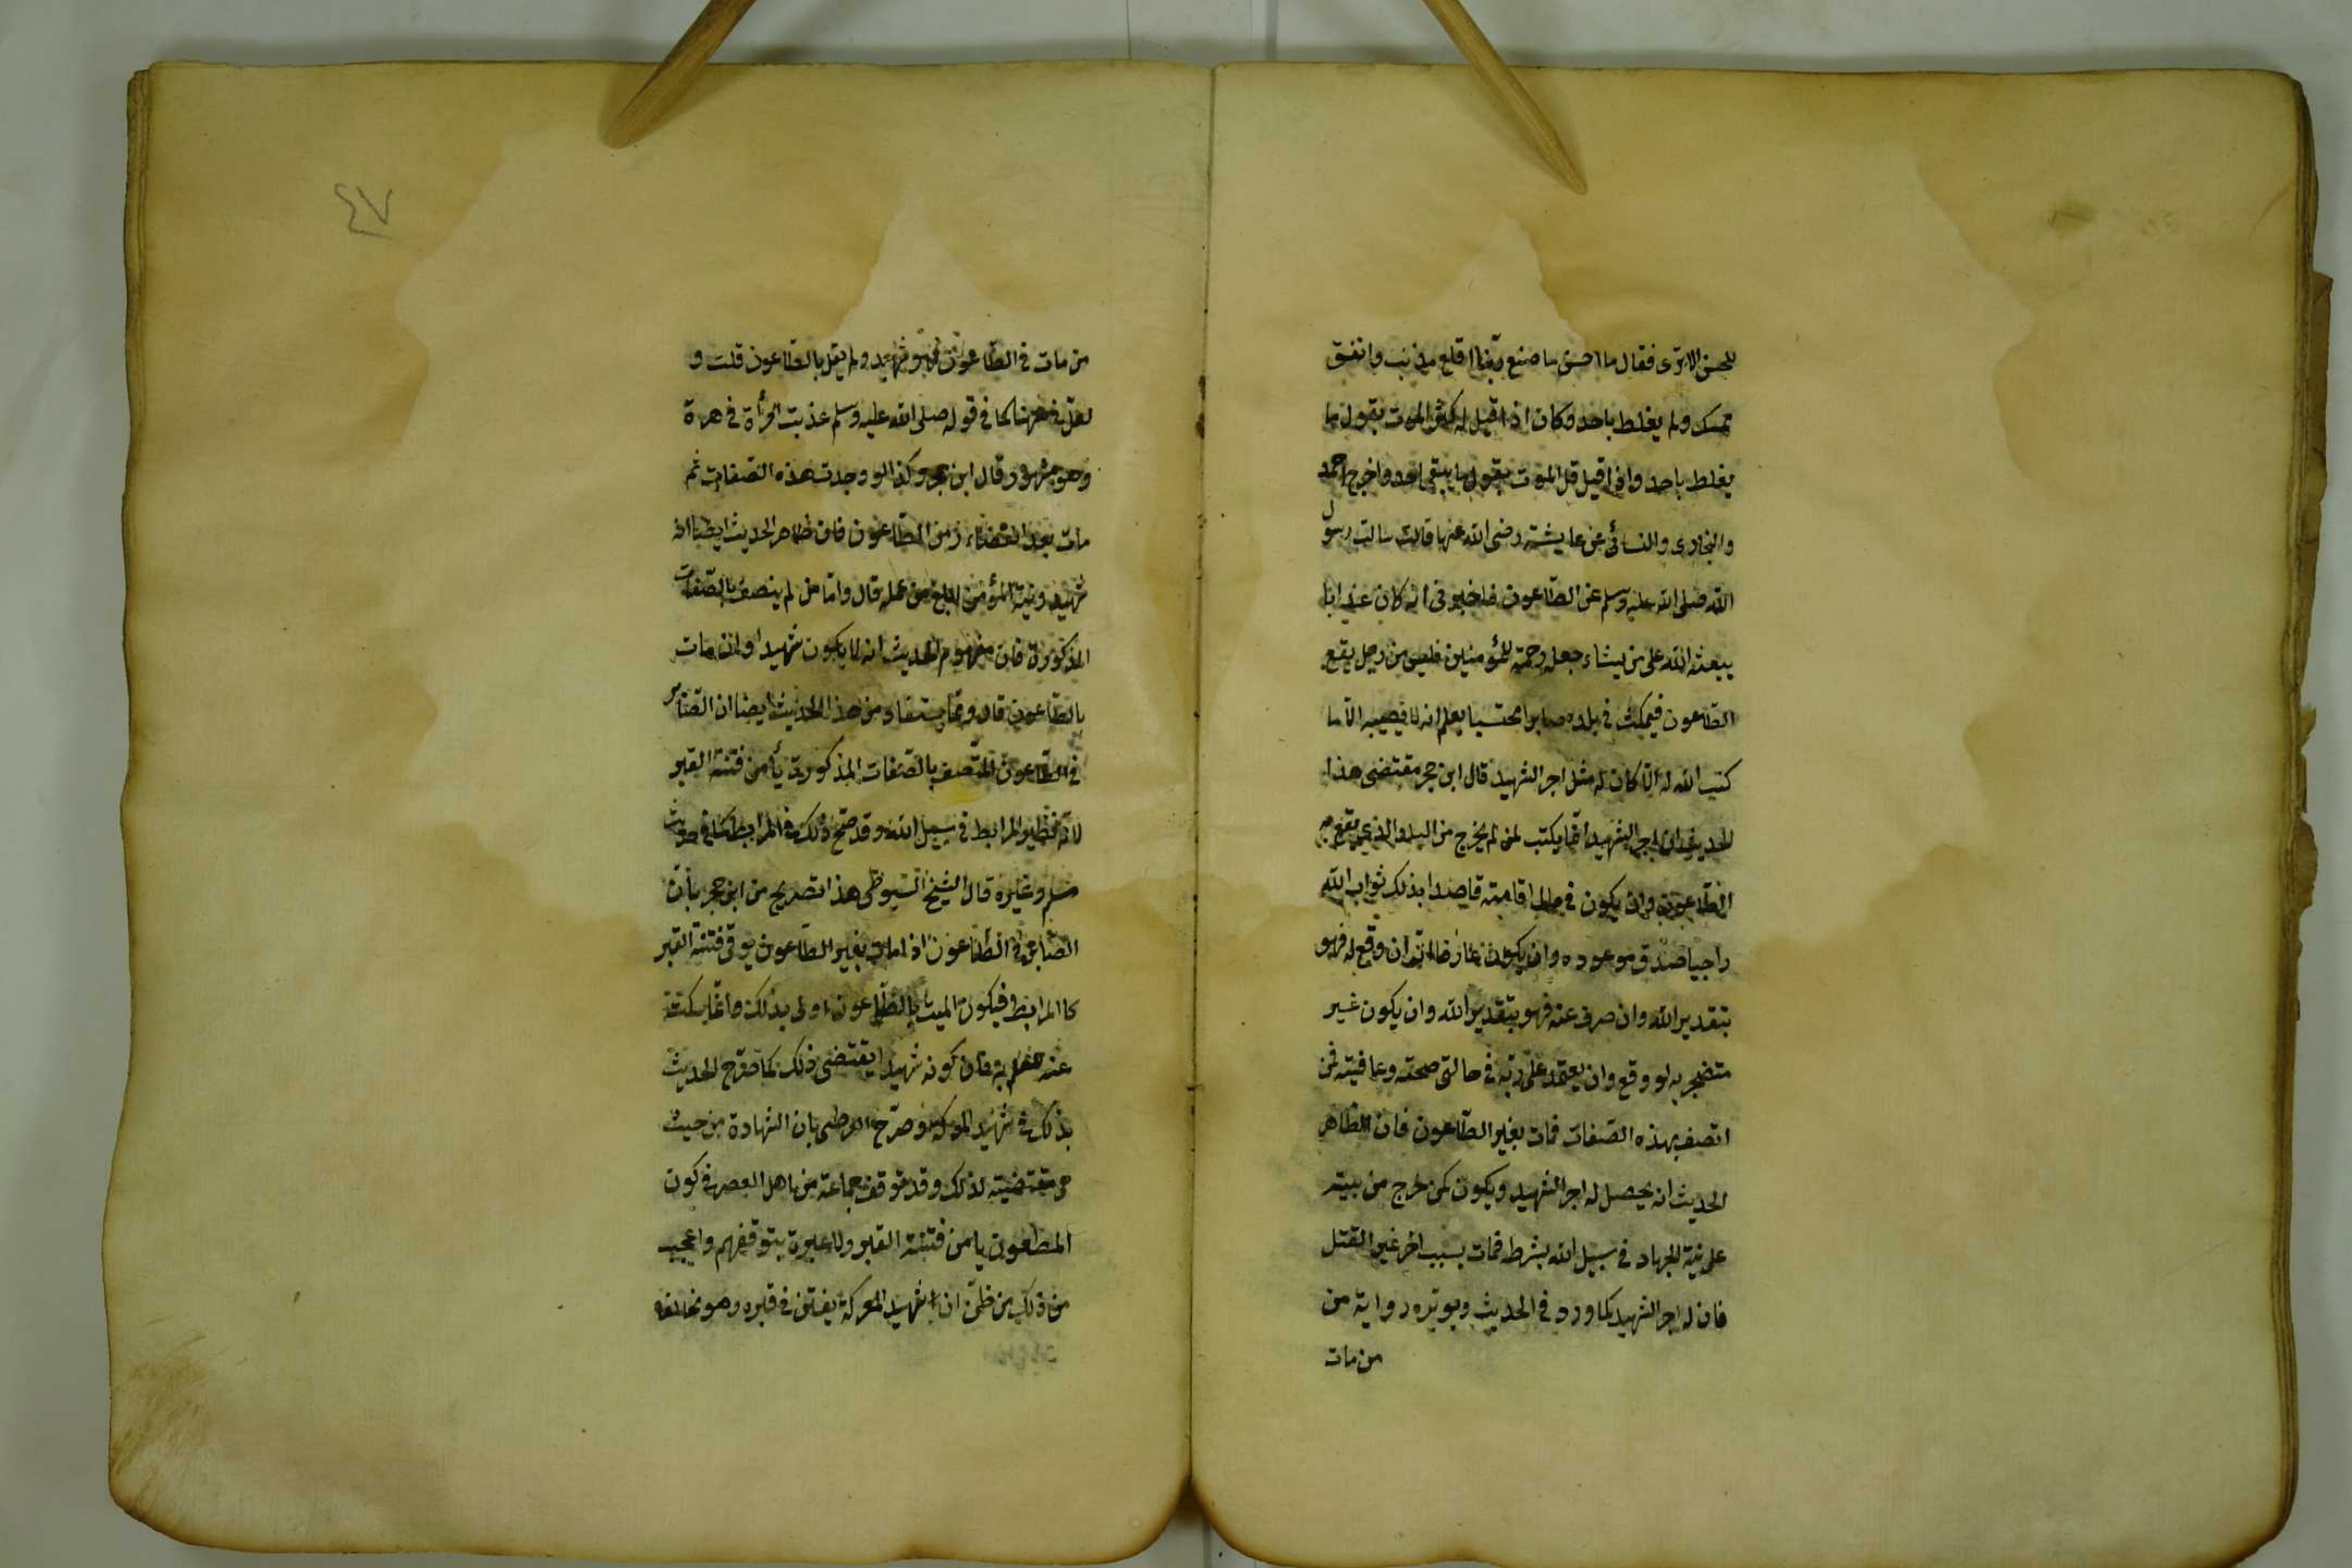 للحسن الا ترى فقال ما احسن ما صنع ربنا اقلع مذنب وانفق
ممسك ولم يغلط باحد وكان اذا قيل له كثر الموت يقول ما
يغلط باحد واذا قيل قل الموت يقول ما يبقى احد واخرج احمد
والبخارى والنسائى عن عايشة رضى الله عنها قالت سالت رسول
الله صلى الله عليه وسلم عن الطاعون فاخبرنى انه كان عذابا
يبعثه الله على من يشاء جعله رحمة للمؤمنين فليس من رجل يقع
الطاعون فيمكث فى بلده صابرا محتسبا يعلم انه لا يصيبه الا ما
كتب الله له الا كان له مثل اجر الشهيد قال ابن حجر مقتضى هذا
الحديث ان اجر الشهيد انما يكتب لمن لم يخرج من البلد الذى يقع به
الطاعون وان يكون فى حال اقامته قاصدا بذلك ثواب الله
راجيا صدق موعوده وان يكون عارفا انه ان وقع له فهو
بتقدير الله وان صرف عنه فهو بتقدير الله وان يكون غير
متضجر به لو وقع وان يعتمد على ربه فى حالتى صحته وعافيته فمن
اتصف بهذه الصفات فمات بغير الطاعون فان الظاهر
الحديث انه يحصل له اجر الشهيد ويكون كمن خرج من بيته
على نية الجهاد فى سبيل الله بشرط فمات بسبب اخر غير القتل
فان له اجر الشهيد كما ورد فى الحديث ويويده رواية من
من مات
٤٧
من مات فى الطاعون فهو شهيد ولم يقل بالطاعون قلت و
لعل فى ههنا كما فى قوله صلى الله عليه وسلم عذبت امرأة فى هرة
وهو مشهور قال ابن حجر وكذا لو وجدت هذه الصفات ثم
مات بعد انقضاء زمن الطاعون فان ظاهر الحديث ايضا انه
شهيد ونية المؤمن ابلغ من عمله قال واما من لم يتصف بالصفات
المذكورة فان مفهوم الحديث انه لا يكون شهيدا وان مات
بالطاعون قال ومما يستفاد من هذا الحديث ايضا ان الصابر
فى الطاعون المتصف بالصفات المذكورة يأمن فتنة القبر
لانه نظير المرابط فى سبيل الله وقد صح ذلك فى المرابط كما فى حديث
مسلم وغيره قال الشيخ السيوطى هذا تصريح من ابن حجر بأن
الصابر فى الطاعون اذا مات بغير الطاعون يوقى فتنة القبر
كالمرابط فيكون الميت بالطاعون اولى بذلك وانما سكت
عنه للعلم به فان كونه شهيدا يقتضى ذلك كما صرح الحديث
بذلك فى شهيد المعركة وصرح القرطبى بان الشهادة من حيث
هى مقتضية لذلك وقد توقف جماعة من اهل العصر فى كون
المطعون يامن فتنة القبر ولا عبرة بتوقفهم واعجب
من ذلك من ظن ان شهيد المعركة يفتن فى قبره وهو مخالف